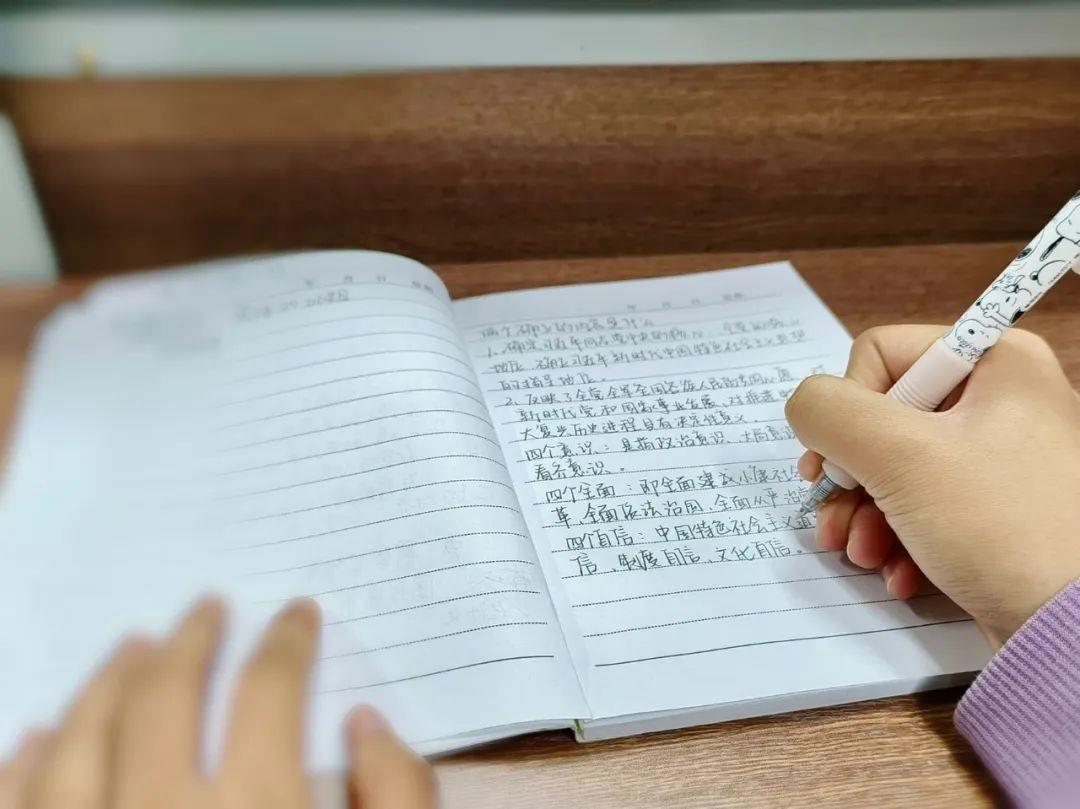 年 月 日
年 月 日
两个确立的内容是什么
1、确立习近平同志党中央的核心、全党的核心
地位,确立习近平新时代中国特色社会主义思想
的指导地位。
2、反映了全党全军全国各族人民的共同心愿,对
新时代党和国家事业发展、对推进
大复兴历史进程具有决定性意义。
四个意识:是指政治意识、大局意识
看齐意识。
四个全面:即全面建成小康社会
革、全面依法治国、全面从严治
四个自信:中国特色社会主义道
信、制度自信、文化自信。